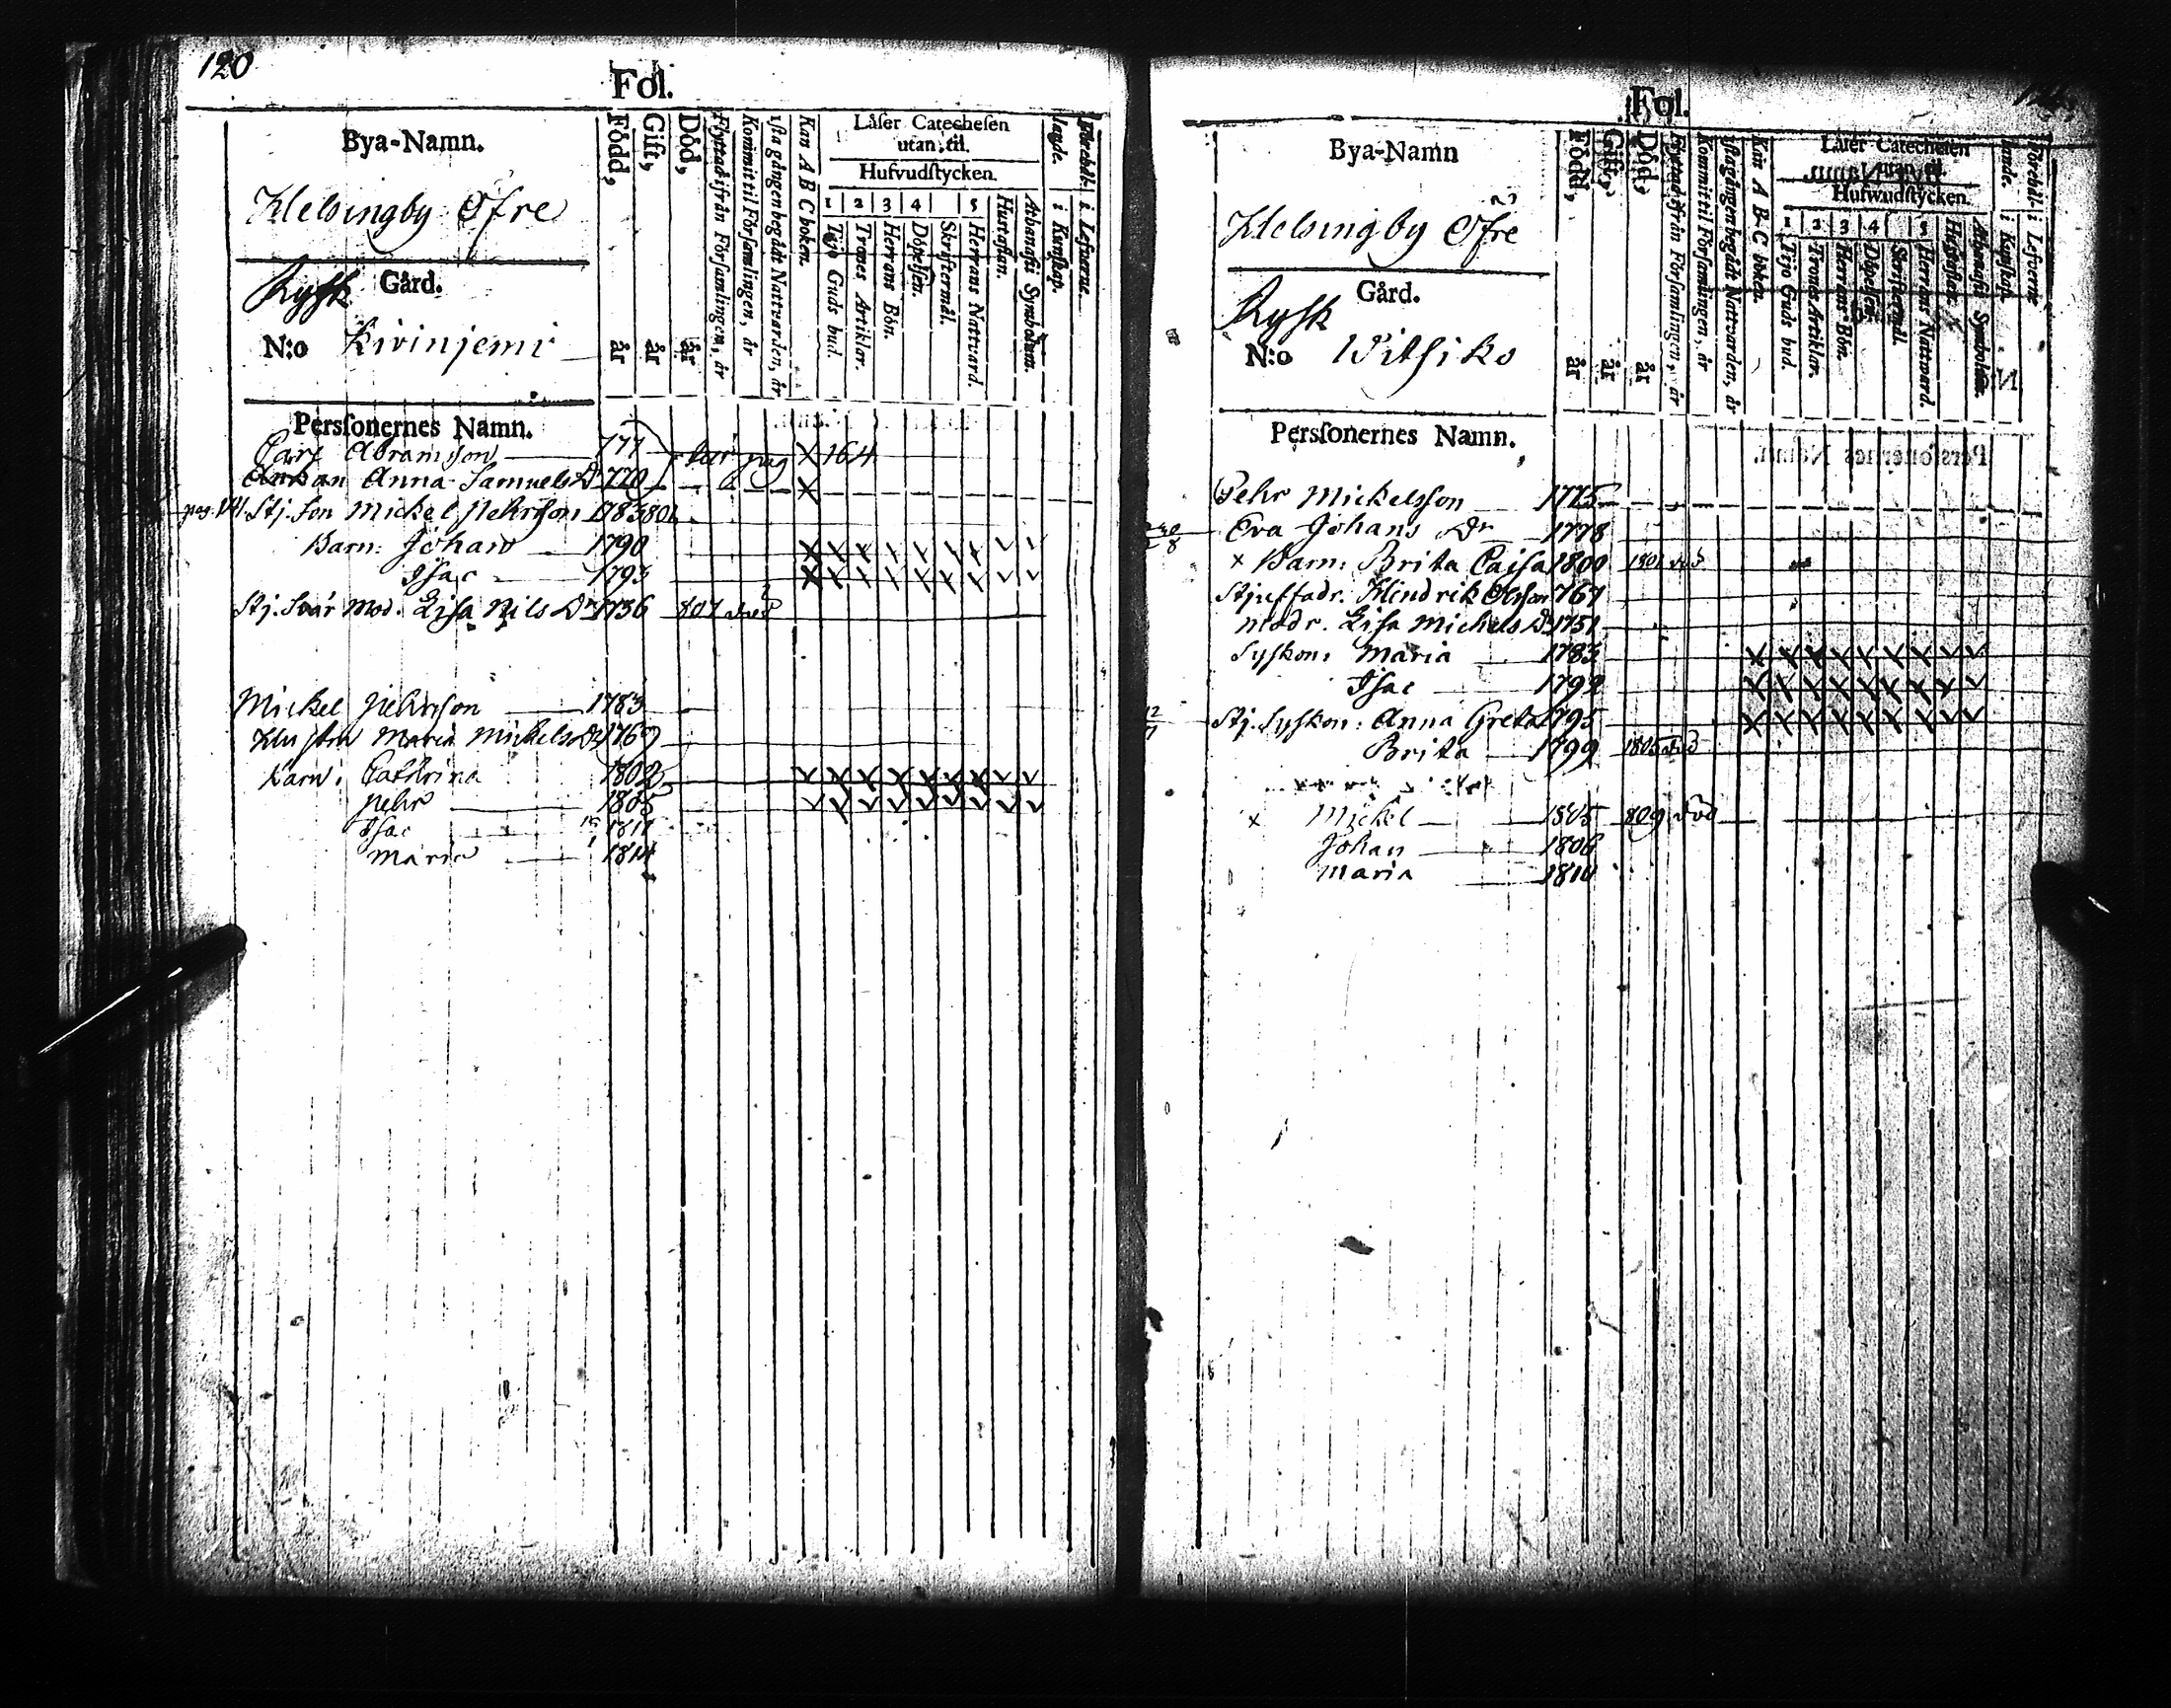 120
Fol.
Bya-Namn.
Helsingby Öfre
Rysk Gård.
N:o Kivinjemi
Född, år
Gift, år
Död, år
Flyttad ifrån Församlingen, år
Kommit til Församlingen, år
1sta gången begådt Nattvarden, år
Kan A B C boken.
Låser Catechesen
utan til.
Hufvudstycken.
1 2 3 4 5
Tijo Guds bud.
Trones Artiklar.
Herrans Bön.
Döpelsen.
Skriftermål.
Herrans Nattvard.
Hustaflan.
Athanasii Symbolum.
i Kunskap.
i Lefverne.
Personernes Namn.
Carl Abramsson 771 X 164
Ankan Anna Samuels Dr 770 X
pag. 141 Stj. Son Mickel Pehrsson 1783 801
Barn: Johan 1790
Isac 1793
Stj. Svär Mod. Lisa Nils Dr 1736 801 död
Mickel Pehrsson 1783
Hustru Maria Mickels Dr 1767
barn: Cathrina 1802
Pehr 1805
Isac 1811
Maria 1814
Fol.
Bya-Namn
Helsingby Öfre
Rysk Gård.
N:o Wilsiko
Född, år
Gift, år
Död, år
Flyttad ifrån Församlingen, år
Kommit til Församlingen, år
1sta gången begådt Nattvarden, år
Kan A B C boken.
Låser Catechesen
utan til.
Hufwudstycken.
1 2 3 4 5
Tijo Guds bud.
Trones Artiklar.
Herrans Bön.
Döpelsen.
Skriftermål.
Herrans Nattward.
Hustaflan.
Athanasii Symbolum.
i Kunskap.
i Lefverne
Personernes Namn.
Pehr Mickelsson 1775
Eva Johans Dr 1778
x Barn: Brita Caisa 1800 1801 död
Stjuffadr. Hindrik Olsson 767
modr. Lisa Michels Dr 1751
Syskon: Maria 1783
Isac 1792
Stj. Syskon: Anna Greta 1795
Brita 1799 1805 död
x Mickel 1805 809 död
Johan 1806
Maria 1810